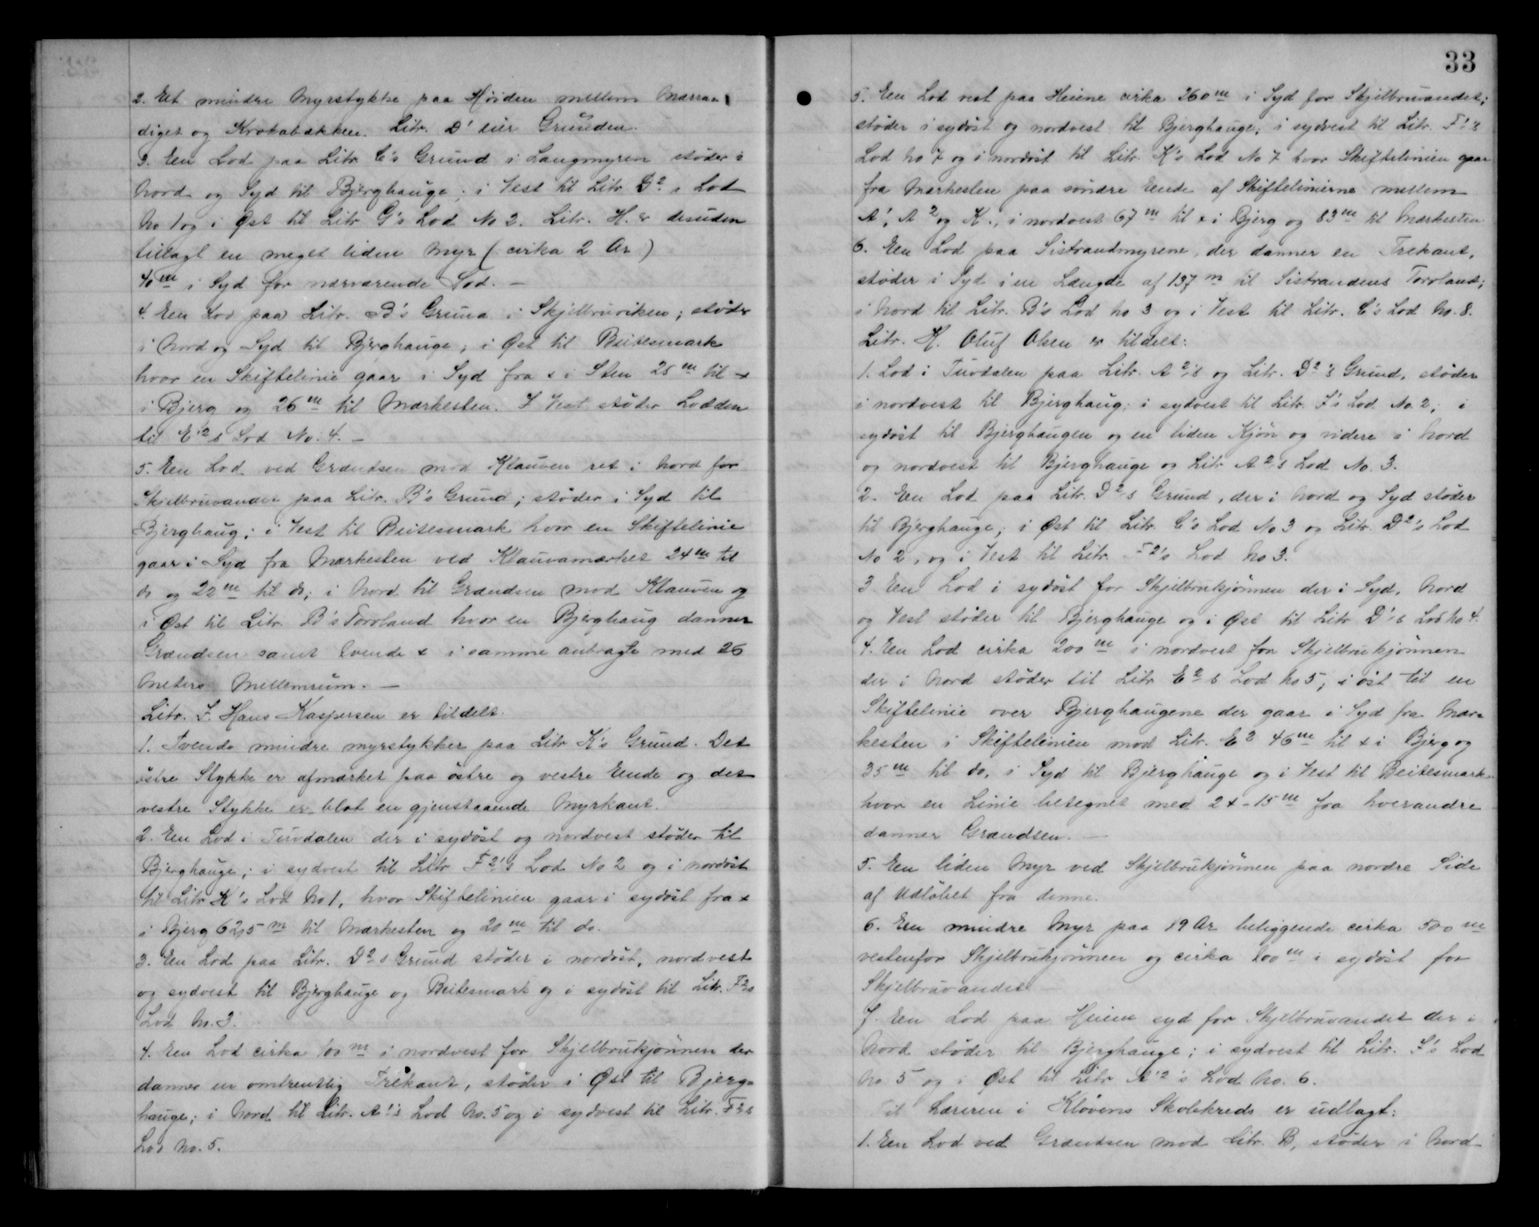 2. Et mindre Myrstykke paa Høiden mellem Marraa-
diget og Krokabækken. Litr. D¹ eier Grunden.
3. Een Lod paa Litr. C's Grund i Langmyren støder i
Nord og Syd til Bjerghauge; i Vest til Litr. D²s Lod
No 1 og i Øst til Litr. G's Lod No 2. Litr. H. er desuden
tillagt en meget liden Myr (cirka 2 Ar)
40 m i Syd for nærværende Lod. —
4. Een Lod paa Litr. B's Grund i Skjelbruviken; støder
i Nord og Syd til Bjerghauge, i Øst til Beitesmark
hvor en Skiftelinie gaar i Syd fra x i Sten 25 m til x
i Bjerg og 26 m til Mærkesten. I Vest støder Lodden
til E²s Lod No. 4. —
5. Een Lod ved Grændsen mod Klauven ret i Nord for
Skjelbruvandet paa Litr. B's Grund; støder i Syd til
Bjerghaug; i Vest til Beitesmark hvor en Skiftelinie
gaar i Syd fra Mærkesten ved Klauvamærket 24 m til
do og 22 m til do; i Nord til Grændsen mod Klauven og
i Øst til Litr. B's Torvland hvor en Bjerghaug danner
Grændsen samt tvende x i samme antragte med 26
Meters Mellemrum. —
Litr. F. Hans Kaspersen er tildelt.
1. Tvende mindre myrstykker paa Litr K's Grund. Det
østre Stykke er afmærket paa østre og vestre Ende og det
vestre Stykke er blot en gjenstaaende Myrkant.
2. Een Lod i Turvdalen der i sydøst og nordvest støder til
Bjerghauge; i sydvest til Litr F²'s Lod No 2 og i nordøst
til Litr K's Lod No 1, hvor Skiftelinien gaar i sydøst fra x
i Bjerg 62,5 m til Mærkesten og 20 m til do.
3. Een Lod paa Litr. D²s Grund støder i nordøst, nordvest
og sydvest til Bjerghauge og Beitesmark og i sydøst til Litr. F²s
Lod No. 3.
4. Een Lod cirka 100 m i nordvest for Skjelbrukjønnen der
danner en omtrentlig Trekant, støder i Øst til Bjerg-
hauge; i Nord til Litr. A¹'s Lod No. 5 og i sydvest til Litr. F²s
Lod No. 5.
33
5. Een Lod vest paa Heiene cirka 260 m i Syd for Skjelbruvandet;
støder i sydøst og nordvest til Bjerghauge; i sydvest til Litr. F²s
Lod No 7 og i nordøst til Litr. K's Lod No 7 hvor Skiftelinien gaar
fra Mærkesten paa søndre Ende af Skiftelinierne mellem
A¹, A² og K., i nordvest 67 m til x i Bjerg og 83 m til Mærkesten
6. Een Lod paa Sistrandmyrene, der danner en Trekant,
støder i Syd i en Længde af 137 m til Sistrandens Torvland;
i Nord til Litr. B's Lod No 3 og i Vest til Litr. C's Lod No. 8.
Litr. H. Oluf Olsen er tildelt:
1. Lod i Turvdalen paa Litr. A²'s og Litr. D²'s Grund, støder
i nordvest til Bjerghaug; i sydvest til Litr. F's Lod No. 2; i
sydøst til Bjerghaugen og en liden Kjøn og videre i Nord
og nordvest til Bjerghauge og Litr A²s Lod No 3.
2. Een Lod paa Litr. D²s Grund, der i Nord og Syd støder
til Bjerghauge; i Øst til Litr. C's Lod No 3 og Litr. D²'s Lod
No 2, og i Vest til Litr. F²'s Lod No 3.
3. Een Lod i sydøst for Skjelbrukjønnen der i Syd, Nord
og Vest støder til Bjerghauge og i Øst til Litr D¹'s Lod No 4.
4. Een Lod cirka 200 m i nordvest for Skjelbrukjønnen
der i Nord støder til Litr E²s Lod No 5; i øst til en
Skiftelinie over Bjerghaugene der gaar i Syd fra Mær-
kesten i Skiftelinien mod Litr. E² 46 m til x i Bjerg og
35 m til do, i Syd til Bjerghauge og i Vest til Beitesmark
hvor en Linie betegnet med 2 x - 15 m fra hverandre
danner Grændsen. —
5. Een liden Myr ved Skjelbrukjønnen paa nordre Side
af Udløbet fra denne.
6. Een mindre Myr paa 19 Ar beliggende cirka 500 m
vestenfor Skjelbrukjønnen og cirka 100 m i sydøst for
Skjelbruvandet
7. Een Lod paa Heiene syd for Skjelbruvandet der i
Nord støder til Bjerghauge; i sydvest til Litr. F's Lod
No 5 og i Øst til Litr A²'s Lod No. 6.
Til Læreren i Kløvens Skolekreds er udlagt:
1. Een Lod ved Grændsen mod Litr. B, støder i Nord